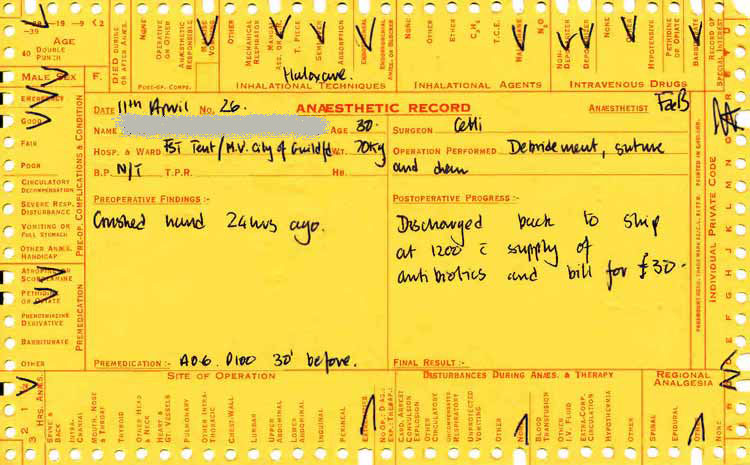 -39 -19 -9 <2
40 DOUBLE PUNCH
AGE
MALE SEX F.
DIED DURING OR AFTER ANÆS.
NONE
OPERATIVE OR OTHER
ANÆSTHETIC RESPONSIBLE
POST-OP. COMPS.
OTHER
MECHANICAL RESPIRATOR
T. PIECE
ABSORPTION
Haloxaire.
INHALATIONAL TECHNIQUES
NONE
OTHER
ETHER
C₂H₄
T.C.E.
HALOTHANE
N₂O
INHALATIONAL AGENTS
NON-DEPOLARIZER
DEPOLARIZER
NONE
OTHER
HYPOTENSIVE
PETHIDINE OR OPIATE
BARBITURATE
INTRAVENOUS DRUGS
RECORD OF SPECIAL INTEREST
DATE 11TH April No. 26.
ANÆSTHETIC RECORD
ANÆSTHETIST FaB
NAME AGE 30.
SURGEON Cetti
HOSP. & WARD FST Tent/M.V. City of Guildfd WT. 70Kg
OPERATION PERFORMED Debridement, suture
B.P. N/T T.P.R. HB.
and chem
PREOPERATIVE FINDINGS :-
Crushed hand 24hrs ago.
POSTOPERATIVE PROGRESS :-
Discharged back to ship
at 1200 c̄ supply of
antibiotics and bill for £30.
PREMEDICATION :- A0.6. P100 30' before.
FINAL RESULT :-
EMERGENCY
GOOD
FAIR
POOR
CIRCULATORY DECOMPENSATION
SEVERE RESP. DISTURBANCE
VOMITING OR FULL STOMACH
OTHER ANÆS. HANDICAP
PRE-OP. COMPLICATIONS & CONDITION
ATROPINE OR SCOPOLAMINE
PETHIDINE OR OPIATE
PHENOTHIAZINE DERIVATIVE
BARBITURATE
OTHER
PREMEDICATION
INDIVIDUAL PRIVATE CODE
SITE OF OPERATION
DISTURBANCES DURING ANÆS. & THERAPY
REGIONAL ANALGESIA
3 2 1
HRS. ANÆS.
SPINE & BACK
INTRA-CRANIAL
MOUTH, NOSE & THROAT
THYROID
OTHER HEAD & NECK
HEART & GT. VESSELS
PULMONARY
OTHER INTRA-THORACIC
CHEST-WALL
LUMBAR
UPPER ABDOMINAL
LOWER ABDOMINAL
INGUINAL
PERINEAL
EXTREMITIES
CARD. ARREST
CONVULSION
EXPLOSION
OTHER CIRCULATORY
UNPROTECTED VOMITING
OTHER
NONE
BLOOD TRANSFUSION
OTHER I.V. FLUID
EXTRA-CORP. CIRCULATION
HYPOTHERMIA
OTHER
SPINAL
EPIDURAL
OTHER
NONE